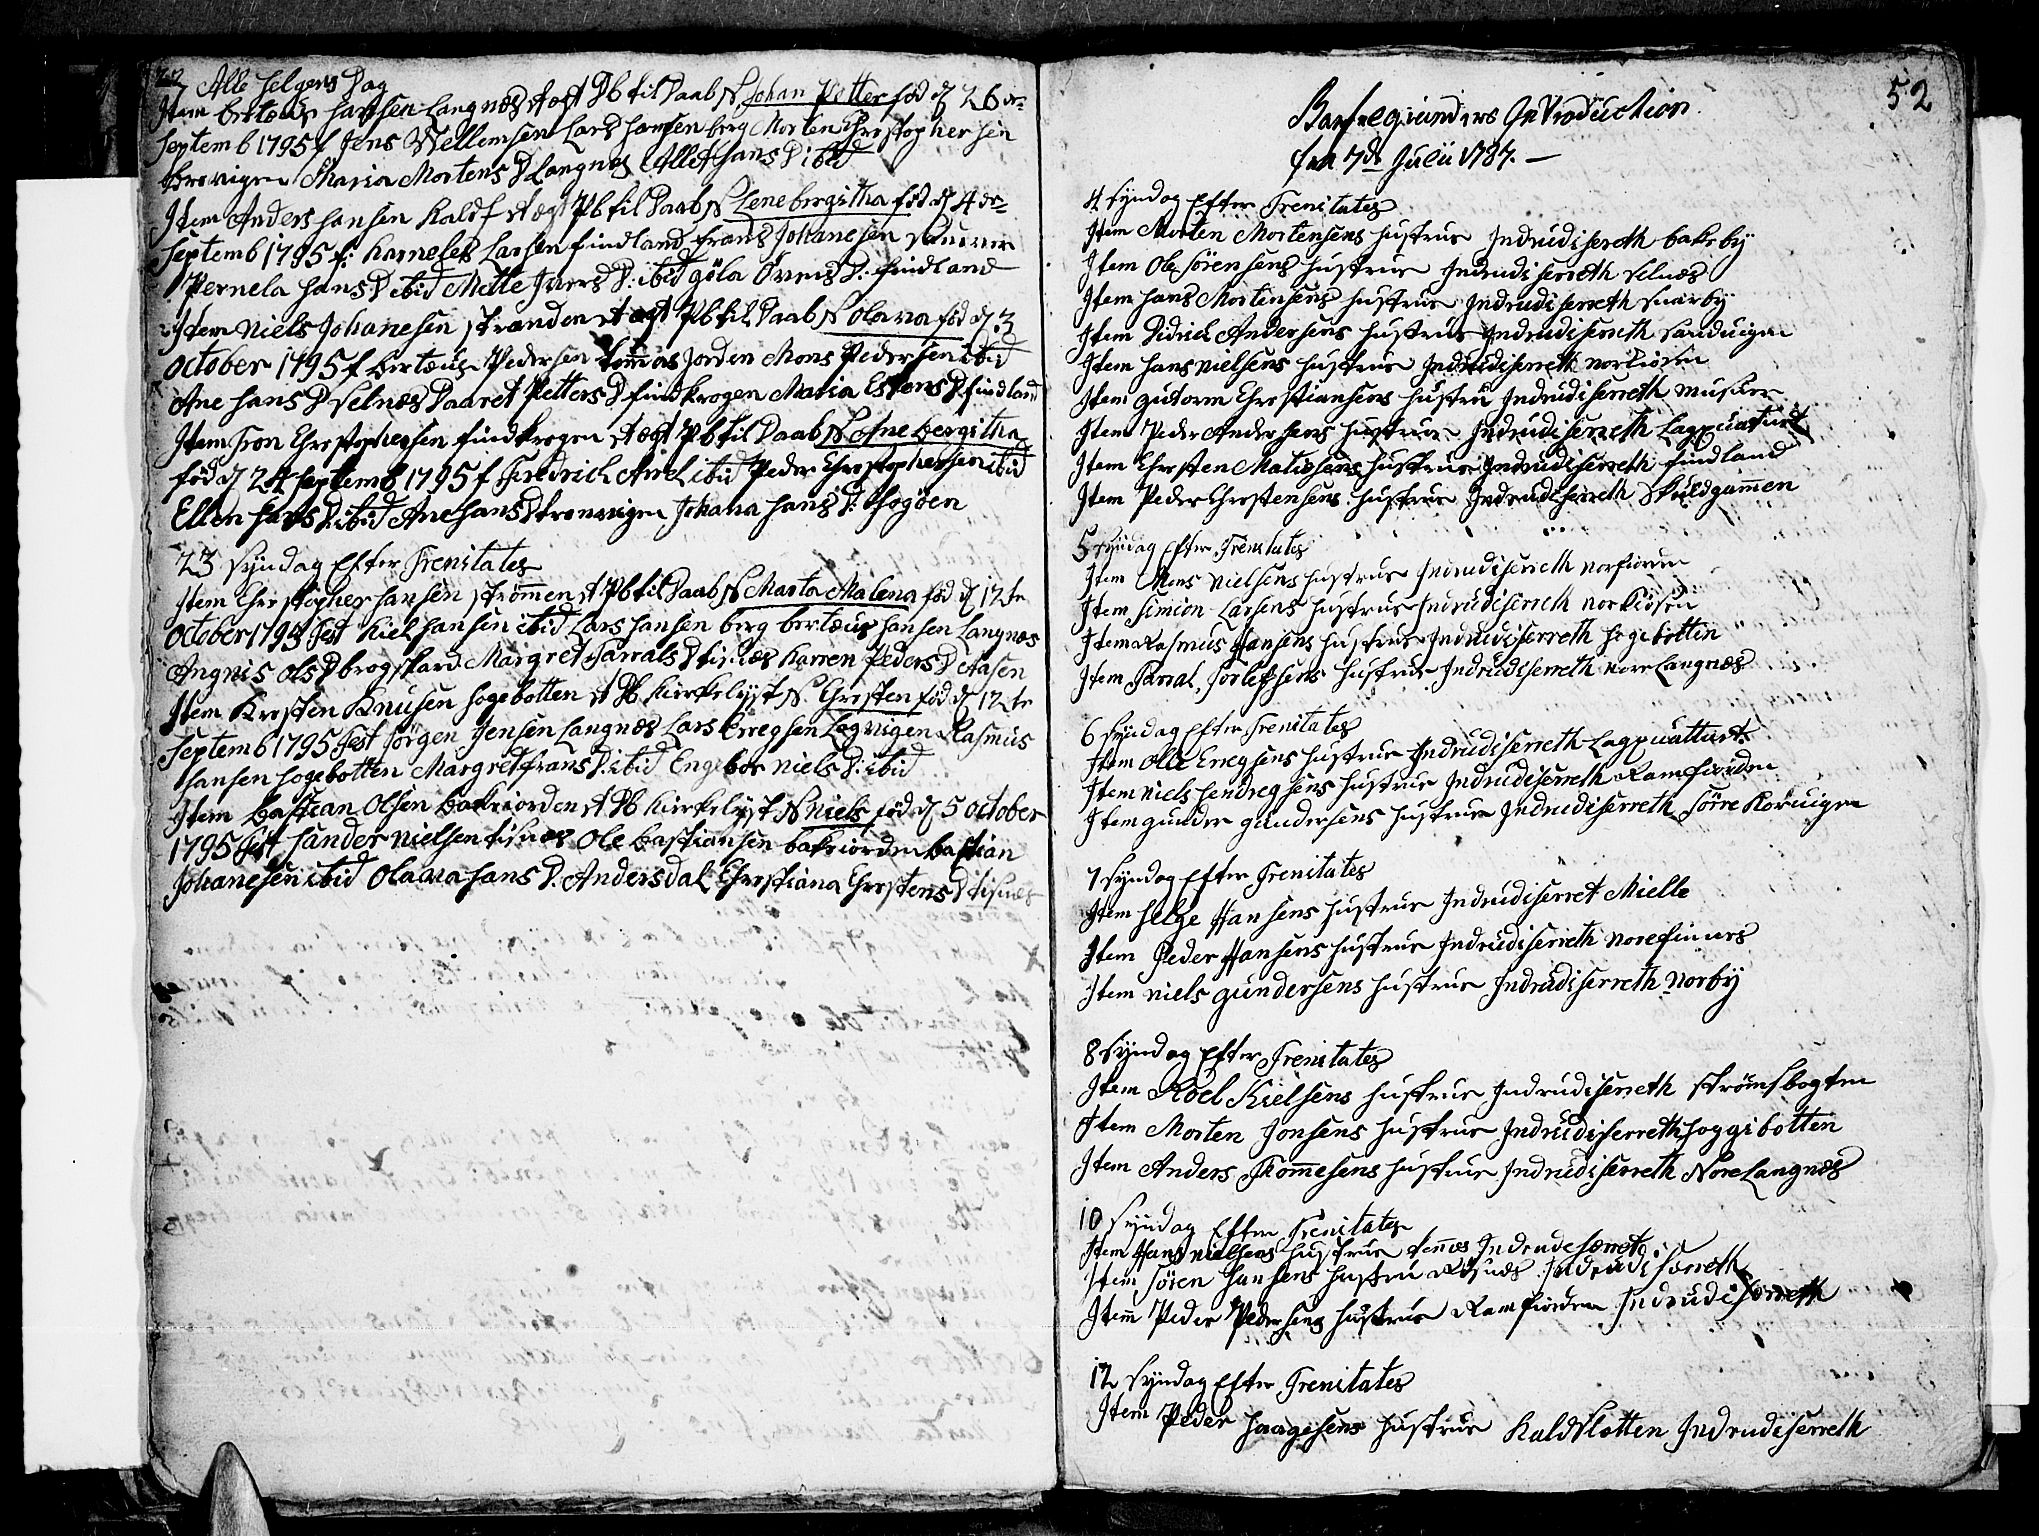 22 Alle Helgens Dag
Item berteus Hansen Langnæs  ægt Pb til Daab N Johan Petter fød d 26 de
Septemb 1795 f Jens Wellemsen Lars Hansen berg Morten Chrestophersen
 Maria Mortens D Langnes Allet Hans D ibid
Item Anders Hansen Kald f  ægt Pb til Daab N Lene bergitha fød d 4 de
Septemb 1795 f: Karneles Larsen findland frans Johanesen
Pernela Hans D ibid Mette Ivers D: ibid göla Övens D: findland
Item Niels Johanesen stranden  ægt Pb til Daab N Olava fød d: 3
October 1795 f berteus Pedersen Jorden Mons Pedersen ibid
Ane Hans D selnæs Daaret Petters D findkrogen Maria Estens D findland
Item Tron Chrestophersen findkrogen  ægt Pb til Daab N bergitha
fød d 24 Septemb 1795 f Fredrich ibid Peder Chrestophersen ibid
Ellen Hans D: ibid Ane Hans D kronvigen Johana Hans D:
23 Syndag Efter Trenitates
Item Chrestopher Hansen strømmen  Pb til Daab N Marta Malena fød d 12te
October 1795 Test Kiel Hansen ibid Lars Hansen berg berteus Hansen Langnæs
Angnis Ols D brogskard Margret Jarrals D tisnæs Karren Peders D Aasen
Item Kresten Knusen Hogebotten  Pb Kirkelyst N: Chresten fød d 12te
Septemb 1795 Test Jørgen Jensen Langnæs Lars Erregsen Lagvigen Rasmus
Hansen Hogebotten Margret frans D: ibid Engebor Niels D: ibid
Item Bastian Olsen bakeiorden  Pb Kirkelyst N Niels fød d 5 October
1795 Test Sander Nielsen tisnæs Ole bastiansen bakeiorden bastian
Johanesen ibid Olava Hans D. Andersdal Chrestiana Chrestens D tisnæs
52
Barselqvinders Introduction
fra 7de Julii 1787. —
4 Syndag Efter Trenitates
Item Morten Mortensens Hustrue Indrudiserreth bakeby
Item Ole Sörensens Hustrue Indrudiserreth selnæs
Item Hans Mortensens Hustrue Indrudiserreth snarby
Item Didrich Andersens Hustrue Indrudiserreth Sanduigen
Item Hans Nielsens Hustrue Indrudiserreth norkiosen
Item Gutorm Chrestiansens Hustru Indrudiserreth
Item Peder Andersens Hustrue Indrudiserreth Lagpuatturt
Item Chresten Matissens Hustrue Indrudiserreth findland
Item Peder Chrestensens Hustrue Indrudiserreth Skuldgammen
5 Syndag Efter Trenitates
Item Mons Nielsens Hustrue Indrudiserreth norfiorden
Item Simion Larsens Hustrue Indrudiserreth norkiösen
Item Rasmus Hansens Hustrue Indrudiserreth Hogebotten
Item Jarral Torlefsens Hustrue Indrudiserreth nore Langnæs
6 Syndag Efter Trenitates
Item Olle Eregsens Hustrue Indrudiserreth Lagpuatturt
Item Niels Hendregsens Hustrue Indrudiserreth Ramfiorden
Item gunder gundersens Hustrue Indrudiserreth Sörre Korvigen
7 Syndag Efter Trenitates
Item Helge Hansens Hustrue Indrudiserret Mielle
Item Peder Hansens Hustrue Indrudiserreth norefinnes
Item Niels gundersens Hustrue Indrudiserreth Norby
8 Syndag Efter Trenitates
Item Roel Kielsens Hustrue Indrudiserreth strømsbogten
Item Morten Jonsens Hustrue Indrudiserreth Hoggibotten
Item Anders Tommesens Hustrue Indrudiserreth Nore Langnæs
10 Syndag Efter Trenitates
Item Hans Nielsens Hustrue Indrudeserret
Item Sören Hansens Hustru Indrudiserreth
Item Peder Pedersens Hustrue Ramfiorden Indrudiserreth
12 Syndag Efter Trenitates
Item Peder Haagesens Hustrue Kaldslotten Indrudeserreth